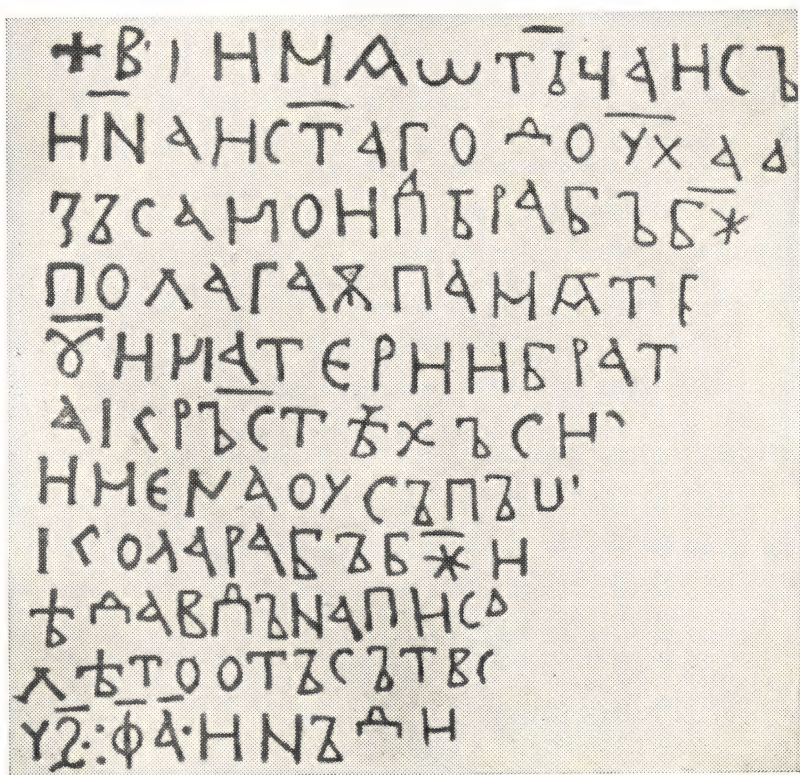 ✚ В҆ І И М Ѧ ѡ Т І Ч А И С Ъ
И Н А И С Т А Г О Д О У Х А А
З Ъ С А М О И Л Ъ Р А Б Ъ Б Ж
П О Л А Г А Ѫ П А М Ѧ Т Е
Ꙋ И М А Т Е Р И И Б Р А Т
А І К Р Ъ С Т Ѣ Х Ъ С И
И М Е Н А О У С Ъ П Ъ Ш
І К О Л А Р А Б Ъ Б Ж И
Ѣ Д А В Д Ъ Н А П И С А
Л Ѣ Т О О Т Ъ С Ъ Т В О
У Ѕ : Ф А · И Н Ъ Д И